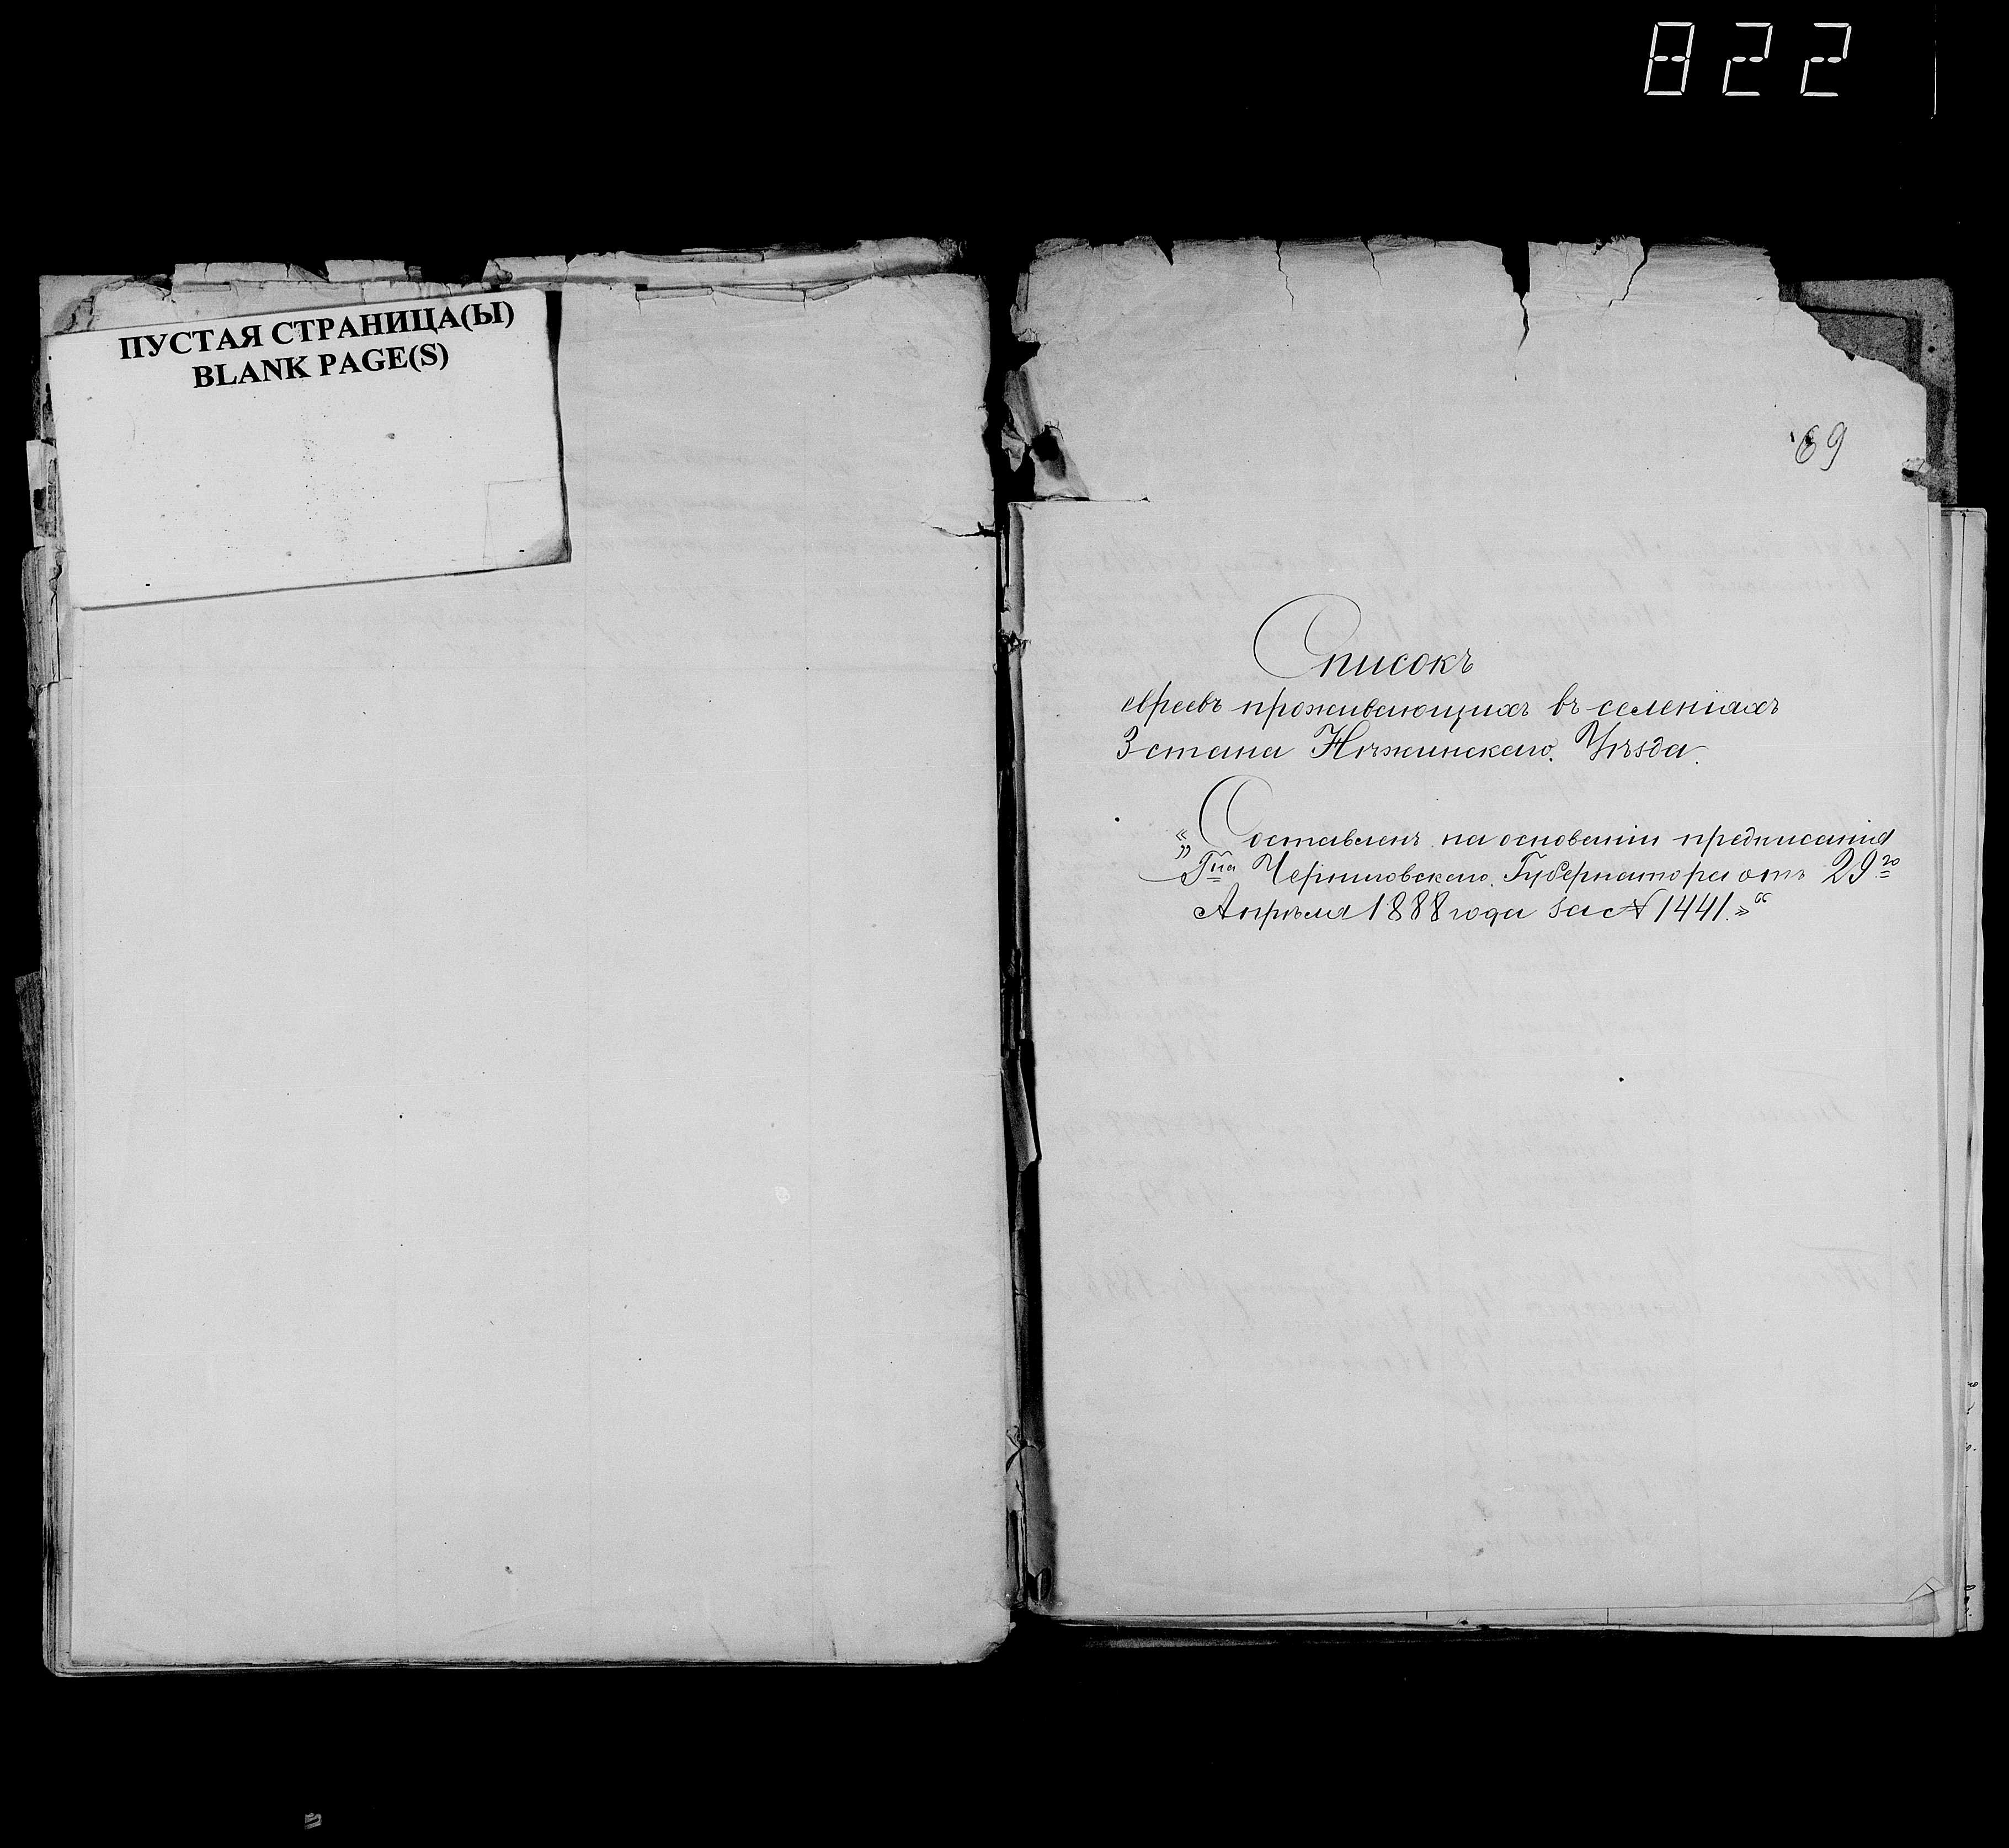 822
ПУСТАЯ СТРАНИЦА(Ы)
BLANK PAGE(S)
69
Списокъ
евреевъ проживающихъ въ селеніяхъ
3 стана Нѣжинскаго Уѣзда.
«Составленъ на основаніи предписанія
Гна Черниговскаго Губернатора отъ 29го
Апрѣля 1888 года за № 1441.»